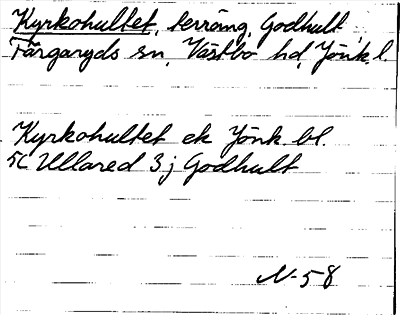 Kyrkohultet, terräng, Godhult
Färgaryds sn, Västbo hd, Jönk. l.
Kyrkohultet ek Jönk bl.
5C Ullared 3j Godhult
N-58